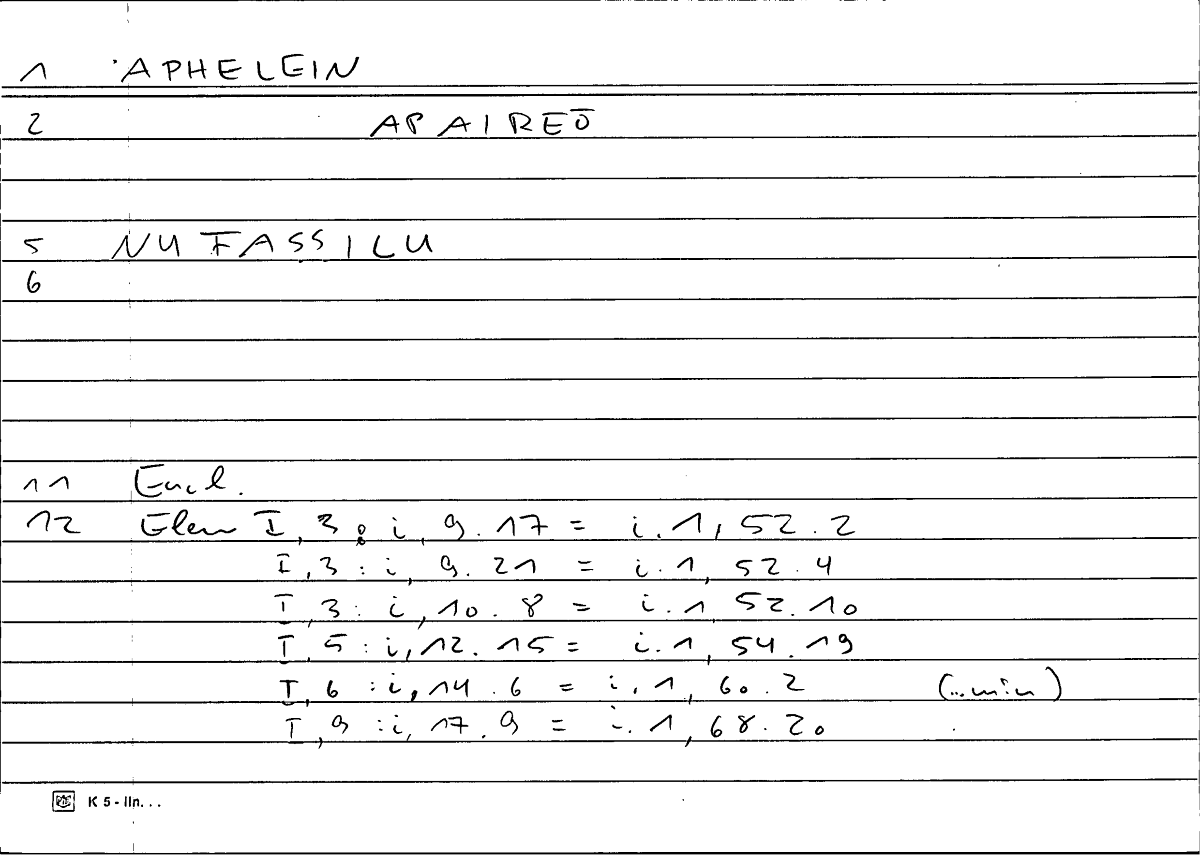 1 'APHELEIN
2 APAIREŌ
5 NUFASSILU
6
11 Eucl.
12 Elem I, 3 : i, 9. 17 = i. 1, 52. 2
I, 3 : i, 9. 21 = i. 1, 52. 4
I, 3 : i, 10. 8 = i. 1, 52. 10
I, 5 : i, 12. 15 = i. 1, 54. 19
I, 6 : i, 14. 6 = i. 1, 60. 2 (...min)
I, 9 : i, 17. 9 = i. 1, 68. 20
K 5 - lln. . .